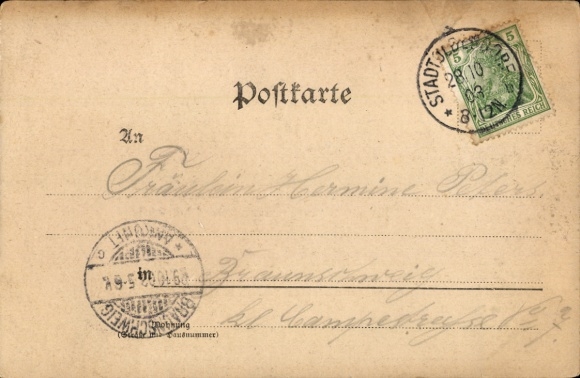 STADTOLDENDORF
5 5
28 10
03
8-12N.
DEUTSCHES REICH
Postkarte
An
Fräulein Hermine Peters.
* ANKUNFT G
in
29.10.03. 5-6V.
BRAUNSCHWEIG
Braunschweig
kl Campestraße No 7
Wohnung
(Straße und Hausnummer)